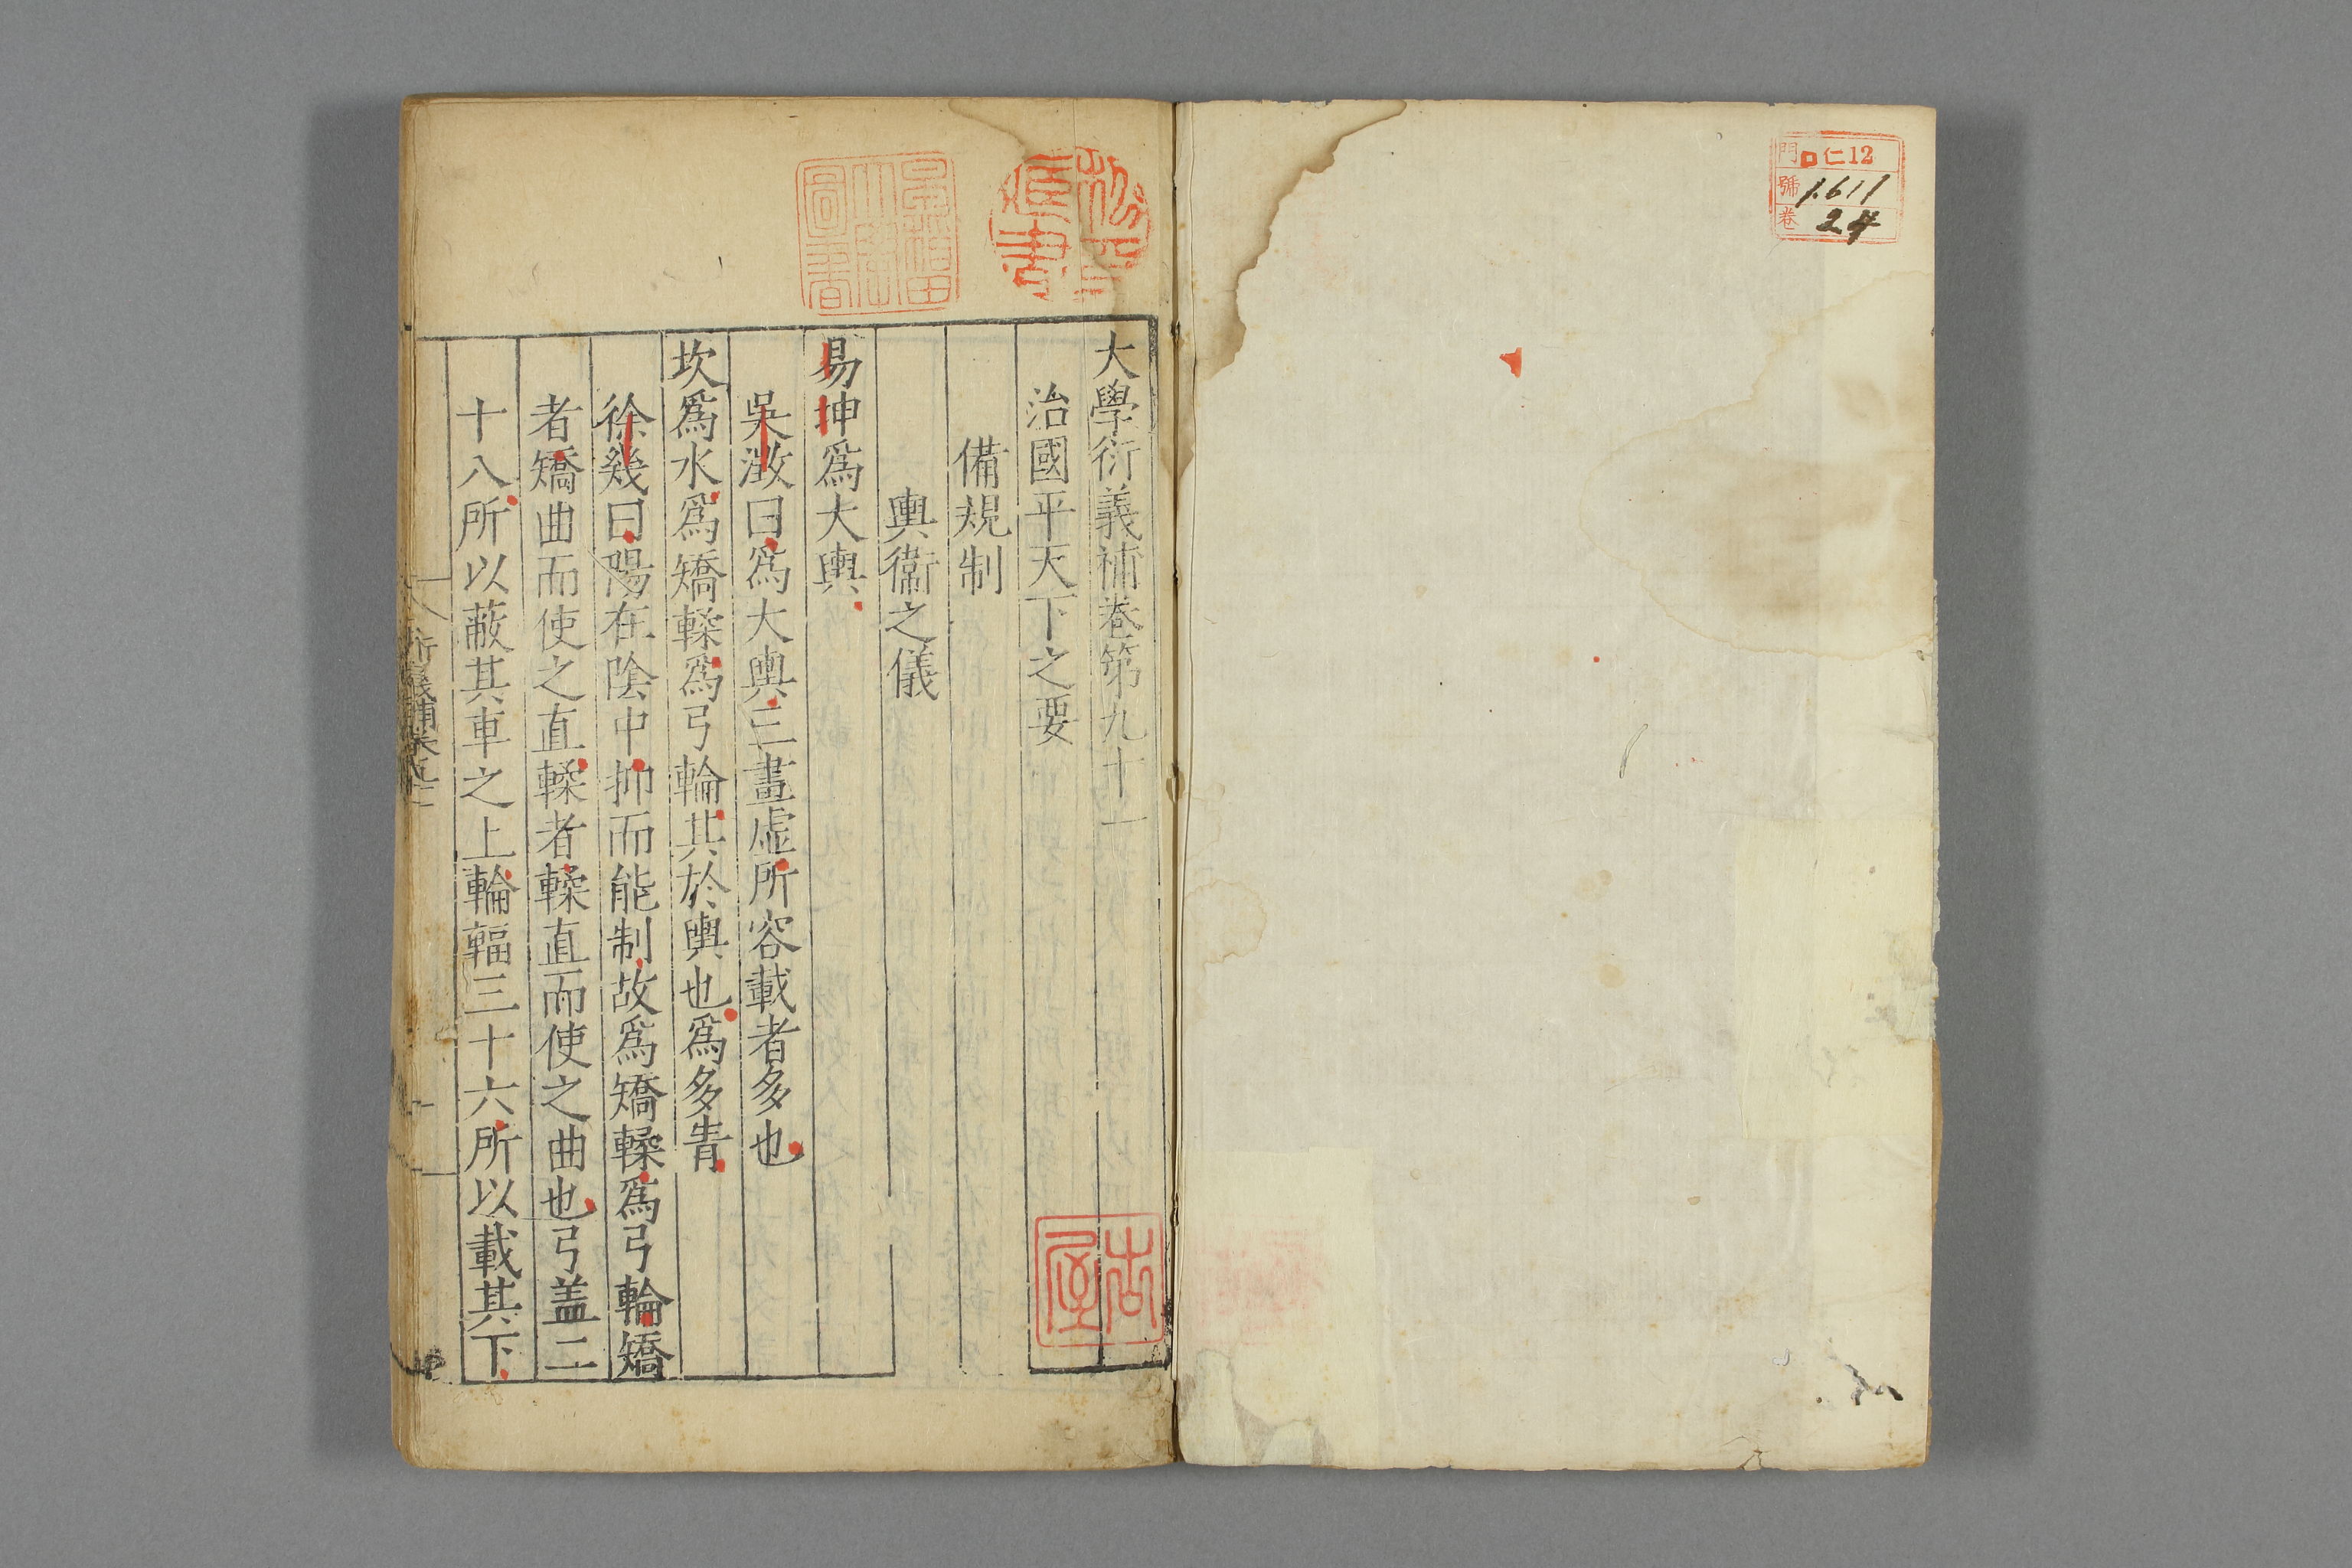 門 仁12
號 1.611
卷 24
大學衍義補卷第九十一
治國平天下之要
備規制
輿衞之儀
易坤爲大輿
吳澂曰爲大輿三畫虛所容載者多也
坎爲水爲矯輮爲弓輪其於輿也爲多眚
徐幾曰陽在陰中抑而能制故爲矯輮爲弓輪矯
者矯曲而使之直輮者輮直而使之曲也弓盖二
十八所以蔽其車之上輪輻三十六所以載其下
衍義補卷九十一
早稻田大學圖書